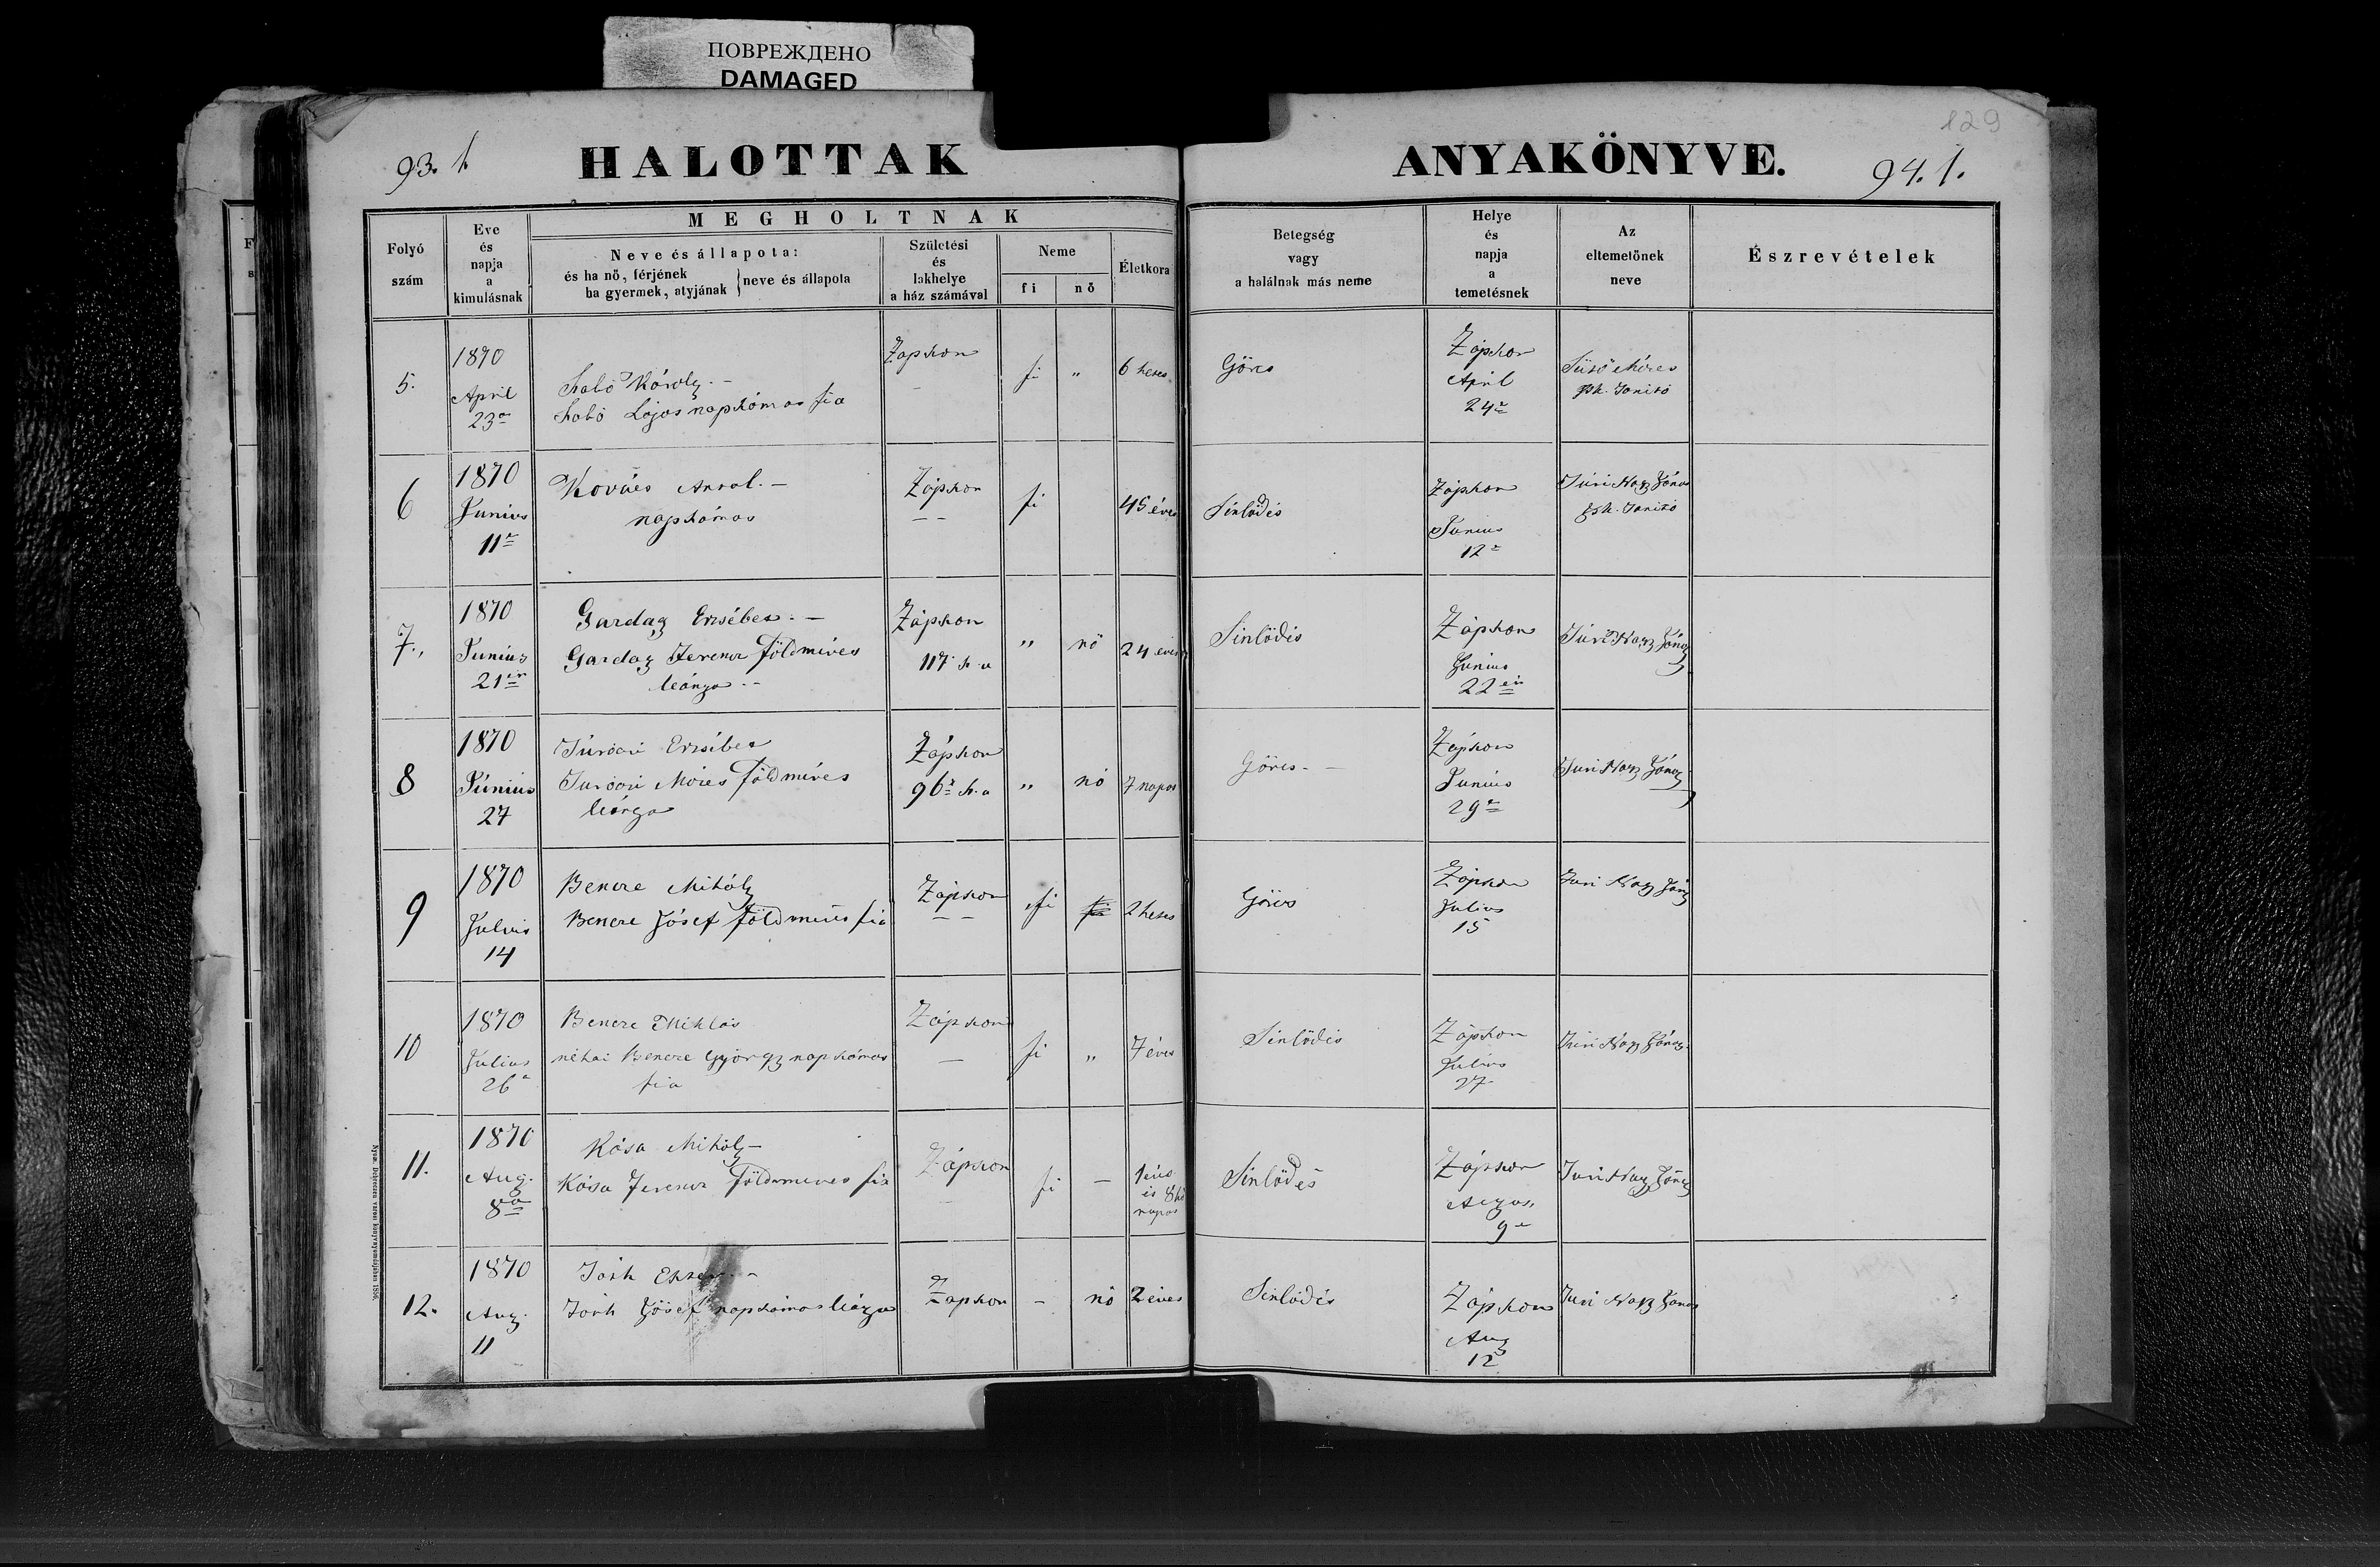 ПОВРЕЖДЕНО
DAMAGED
129
93. l.
HALOTTAK
ANYAKÖNYVE.
94. l.
Folyó
szám
Eve
és
napja
a
kimulásnak
MEGHOLTNAK
Neve és állapota:
és ha nő, férjének
ha gyermek, atyjának } neve és állapota
Születési
és
lakhelye
a ház számával
Neme
fi
nő
Életkora
Betegség
vagy
a halálnak más neme
Helye
és
napja
a
temetésnek
Az
eltemetőnek
neve
Észrevételek
5.
1870
April
23a
Szabó Károly. –
Szabó Lajos napszámos fia
Zapszon
–
fi
"
6 hetes
Görcs
Zápszon
April
24a
Mózes
6
1870
Junius
11a
Kovács Antal. –
napszámos
Zápszon
– –
fi
45 éves
Sinlődés
Zápszon
Junius
12a
Túri Nagy János
7.,
1870
Junius
21én
Garday Erzsébet. –
Garday Ferencz földmíves
leánya. –
Zápszon
117. sz. a
"
nő
24 éves
Sinlődés
Zápszon
Junius
22én
Túri Nagy János
8
1870
Június
27
Erzsébet
Mózes földmíves
leánya
Zápszon
96. sz. a
"
nő
7 napos
Görcs. –
Zápszon
Junius
29a
Turi Nagy János
9
1870
Julius
14
Bencze Mihály
Bencze Jósef földmíves fia
Zápszon
– –
fi
2 hetes
Görcs
Zápszon
Julius
15
Turi Nagy János
10
1870
Julius
26a
Bencze Miklós
néhai Bencze György napszámos
fia
Zápszon
–
fi
"
7 éves
Sinlődés
Zápszon
Julius
27
Turi Nagy János
11.
1870
Aug.
8a
Kósa Mihály –
Kósa Ferencz földmives fia
Zápszon
–
fi
–
1 éves
és 8
napos
Sinlődés
Zápszon
Augus.
9a
Turi Nagy János
12.
1870
Aug.
11
Tóth
Tóth Jósef napszámos leánya
Zapszon
–
nő
2 éves
Sinlődés
Zápszon
Aug
12
Turi Nagy János
Nyom. Debreczen város könyvnyomdájában 1856.